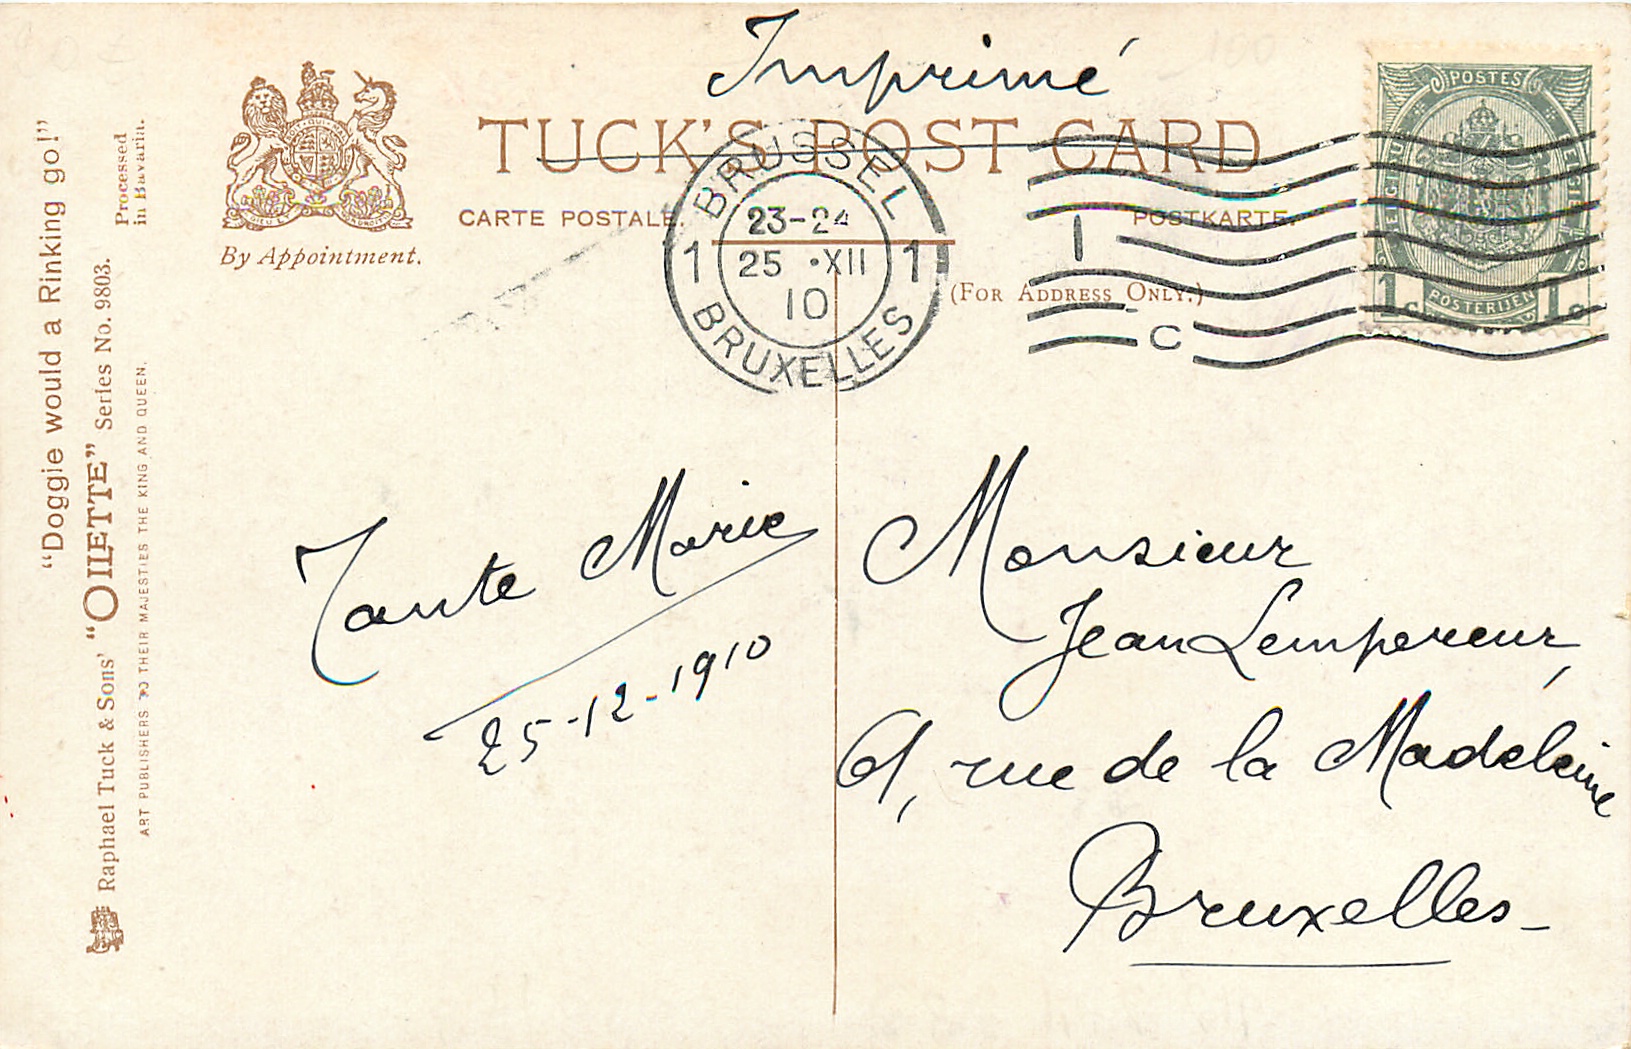 Imprimé
TUCK'S POST CARD
CARTE POSTALE.
POSTKARTE.
(FOR ADDRESS ONLY.)
By Appointment.
BRUSSEL
23-24
1 25 •XII 1
10
BRUXELLES
1
C
POSTES
POSTERIJEN
1c 1c
"Doggie would a Rinking go!"
Processed
in Bavaria.
Raphael Tuck & Sons' "OILETTE" Series No. 9803.
ART PUBLISHERS TO THEIR MAJESTIES THE KING AND QUEEN.
Tante Marie
25-12-1910
Monsieur
Jean Lempereur,
61, rue de la Madeleine
Bruxelles-